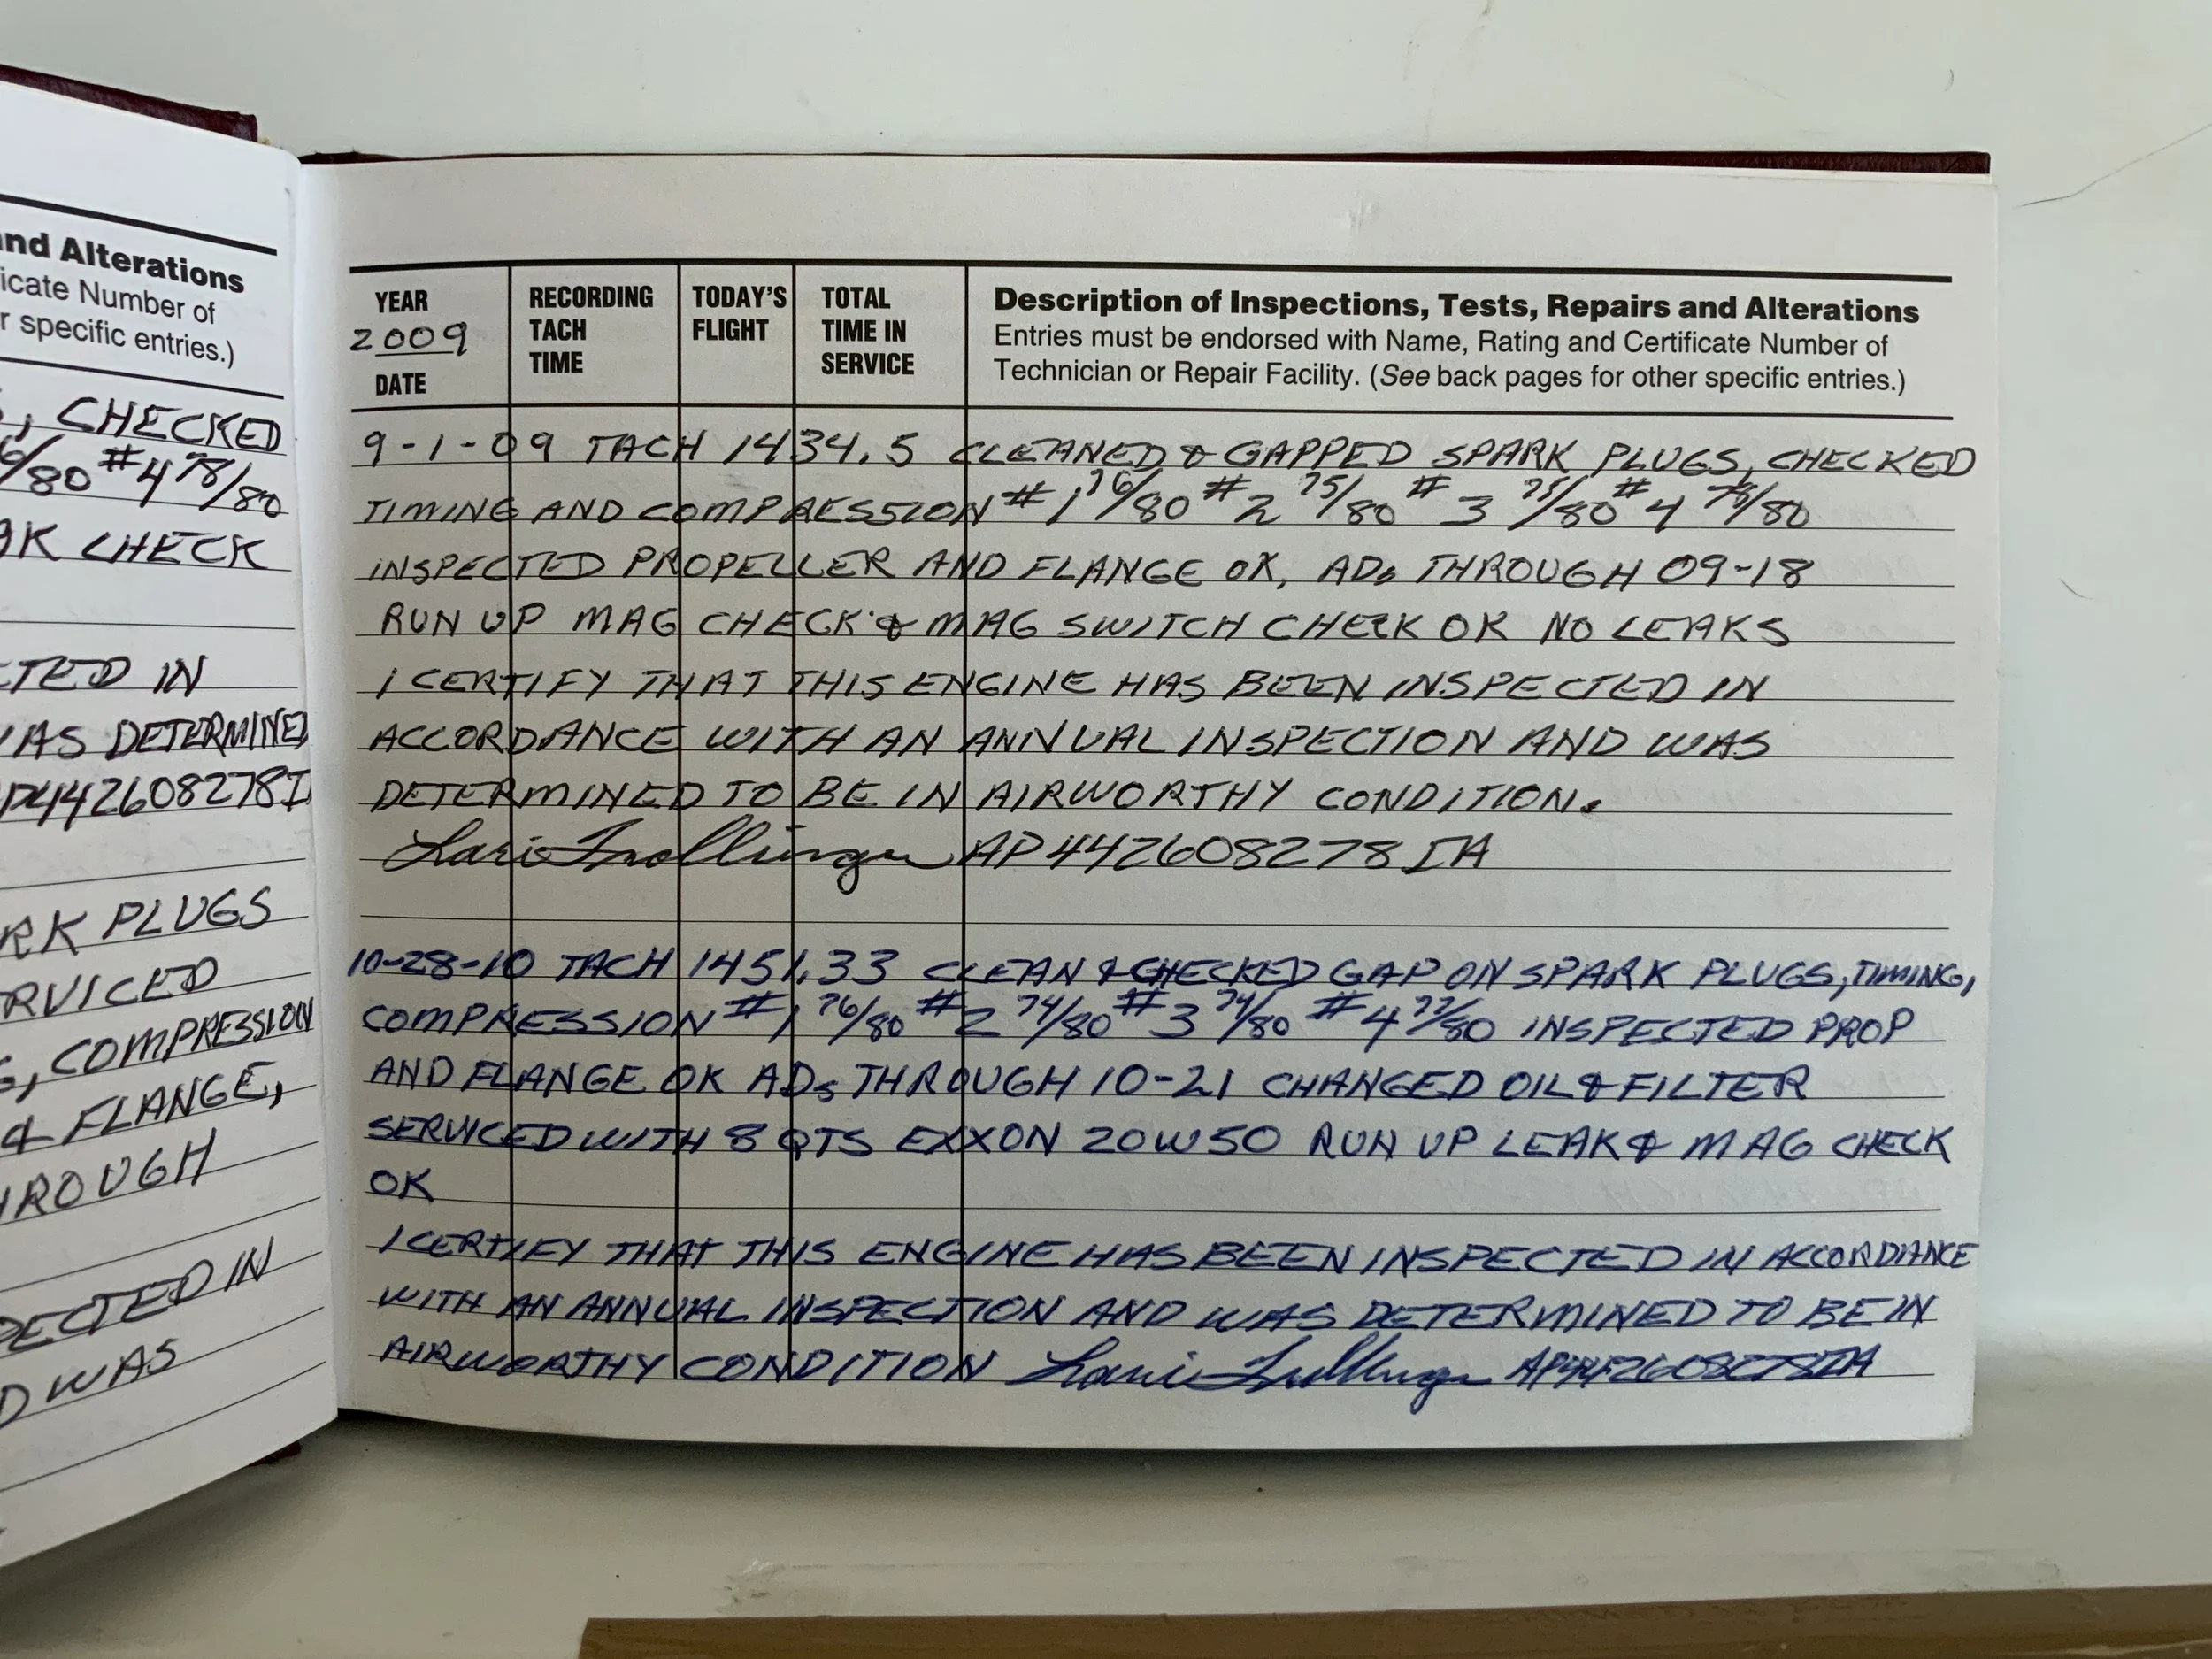 and Alterations
icate Number of
r specific entries.)
, CHECKED
6/80 #4 78/80
K CHECK
CTED IN
WAS DETERMINED
P442608278I
RK PLUGS
RVICED
, COMPRESSION
& FLANGE,
HROUGH
PECTED IN
D WAS
YEAR
2009
DATE
RECORDING
TACH
TIME
TODAY'S
FLIGHT
TOTAL
TIME IN
SERVICE
Description of Inspections, Tests, Repairs and Alterations
Entries must be endorsed with Name, Rating and Certificate Number of
Technician or Repair Facility. (See back pages for other specific entries.)
9-1-09 TACH 1434.5 CLEANED & GAPPED SPARK PLUGS, CHECKED
TIMING AND COMPRESSION #1 76/80 #2 75/80 #3 75/80 #4 78/80
INSPECTED PROPELLER AND FLANGE OK, ADs THROUGH 09-18
RUN UP MAG CHECK & MAG SWITCH CHECK OK NO LEAKS
I CERTIFY THAT THIS ENGINE HAS BEEN INSPECTED IN
ACCORDANCE WITH AN ANNUAL INSPECTION AND WAS
DETERMINED TO BE IN AIRWORTHY CONDITION.
AP442608278IA
10-28-10 TACH 1451.33 CLEAN & CHECKED GAP ON SPARK PLUGS, TIMING,
COMPRESSION #1 76/80 #2 74/80 #3 74/80 #4 77/80 INSPECTED PROP
AND FLANGE OK ADs THROUGH 10-21 CHANGED OIL & FILTER
SERVICED WITH 8 QTS EXXON 20W50 RUN UP LEAK & MAG CHECK
OK
I CERTIFY THAT THIS ENGINE HAS BEEN INSPECTED IN ACCORDANCE
WITH AN ANNUAL INSPECTION AND WAS DETERMINED TO BE IN
AIRWORTHY CONDITION AP442608278IA